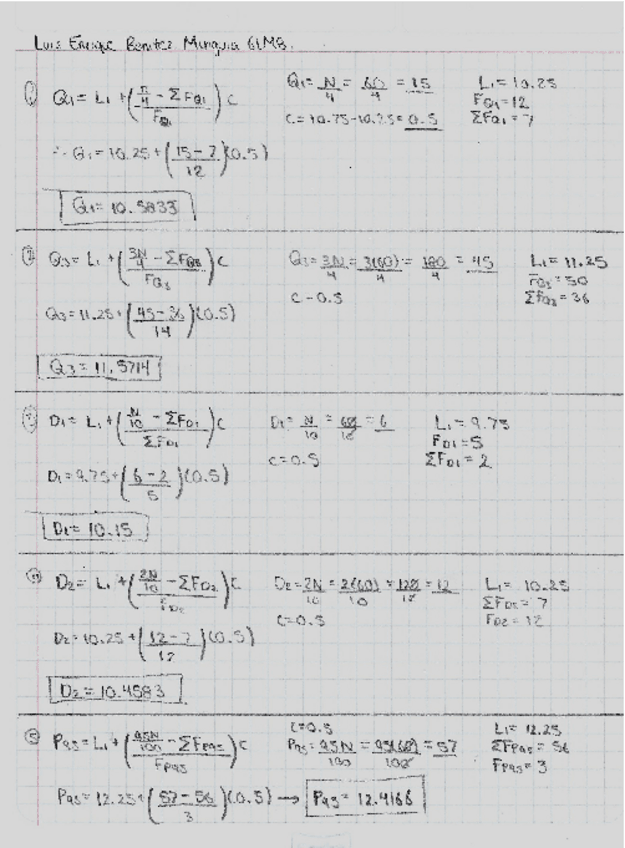 Luis Enrique Benitez Munguia 6LMB.
① Q₁ = L₁ + ((n/4 - ΣFQ₁)/FQ₁) c
Q₁ = N/4 = 60/4 = 15
c = 10.75-10.25 = 0.5
L₁ = 10.25
FQ₁ = 12
ΣFQ₁ = 7
∴ Q₁ = 10.25 + ((15-7)/12)(0.5)
Q₁ = 10.5833
Q₃ = L₁ + ((3N/4 - ΣFQ₃)/FQ₃) c
Q₃ = 3N/4 = 3(60)/4 = 180/4 = 45
c - 0.5
L₁ = 11.25
FQ₃ = 50
ΣFQ₃ = 36
Q₃ = 11.25 + ((45-36)/14)(0.5)
Q₃ = 11.5714
D₁ = L₁ + ((N/10 - ΣFD₁)/ΣFD₁) c
D₁ = N/10 = 60/10 = 6
c = 0.5
L₁ = 9.75
FD1 = 5
ΣFD1 = 2
D₁ = 9.75 + ((6-2)/5)(0.5)
D₁ = 10.15
D₂ = L₁ + ((2N/10 - ΣFD₂)/FD₂) c
D₂ = 2N/10 = 2(60)/10 = 120/10 = 12
c = 0.5
L₁ = 10.25
ΣFD₂ = 7
FD2 = 12
D₂ = 10.25 + ((12-7)/12)(0.5)
D₂ = 10.4583
⑤ P₉₅ = L₁ + ((95N/100 - ΣFP₉₅)/FP₉₅) c
c = 0.5
P₉₅ = 95N/100 = 95(60)/100 = 57
L₁ = 12.25
ΣFP₉₅ = 56
FP₉₅ = 3
P₉₅ = 12.25 + ((57-56)/3)(0.5) → P₉₅ = 12.4166